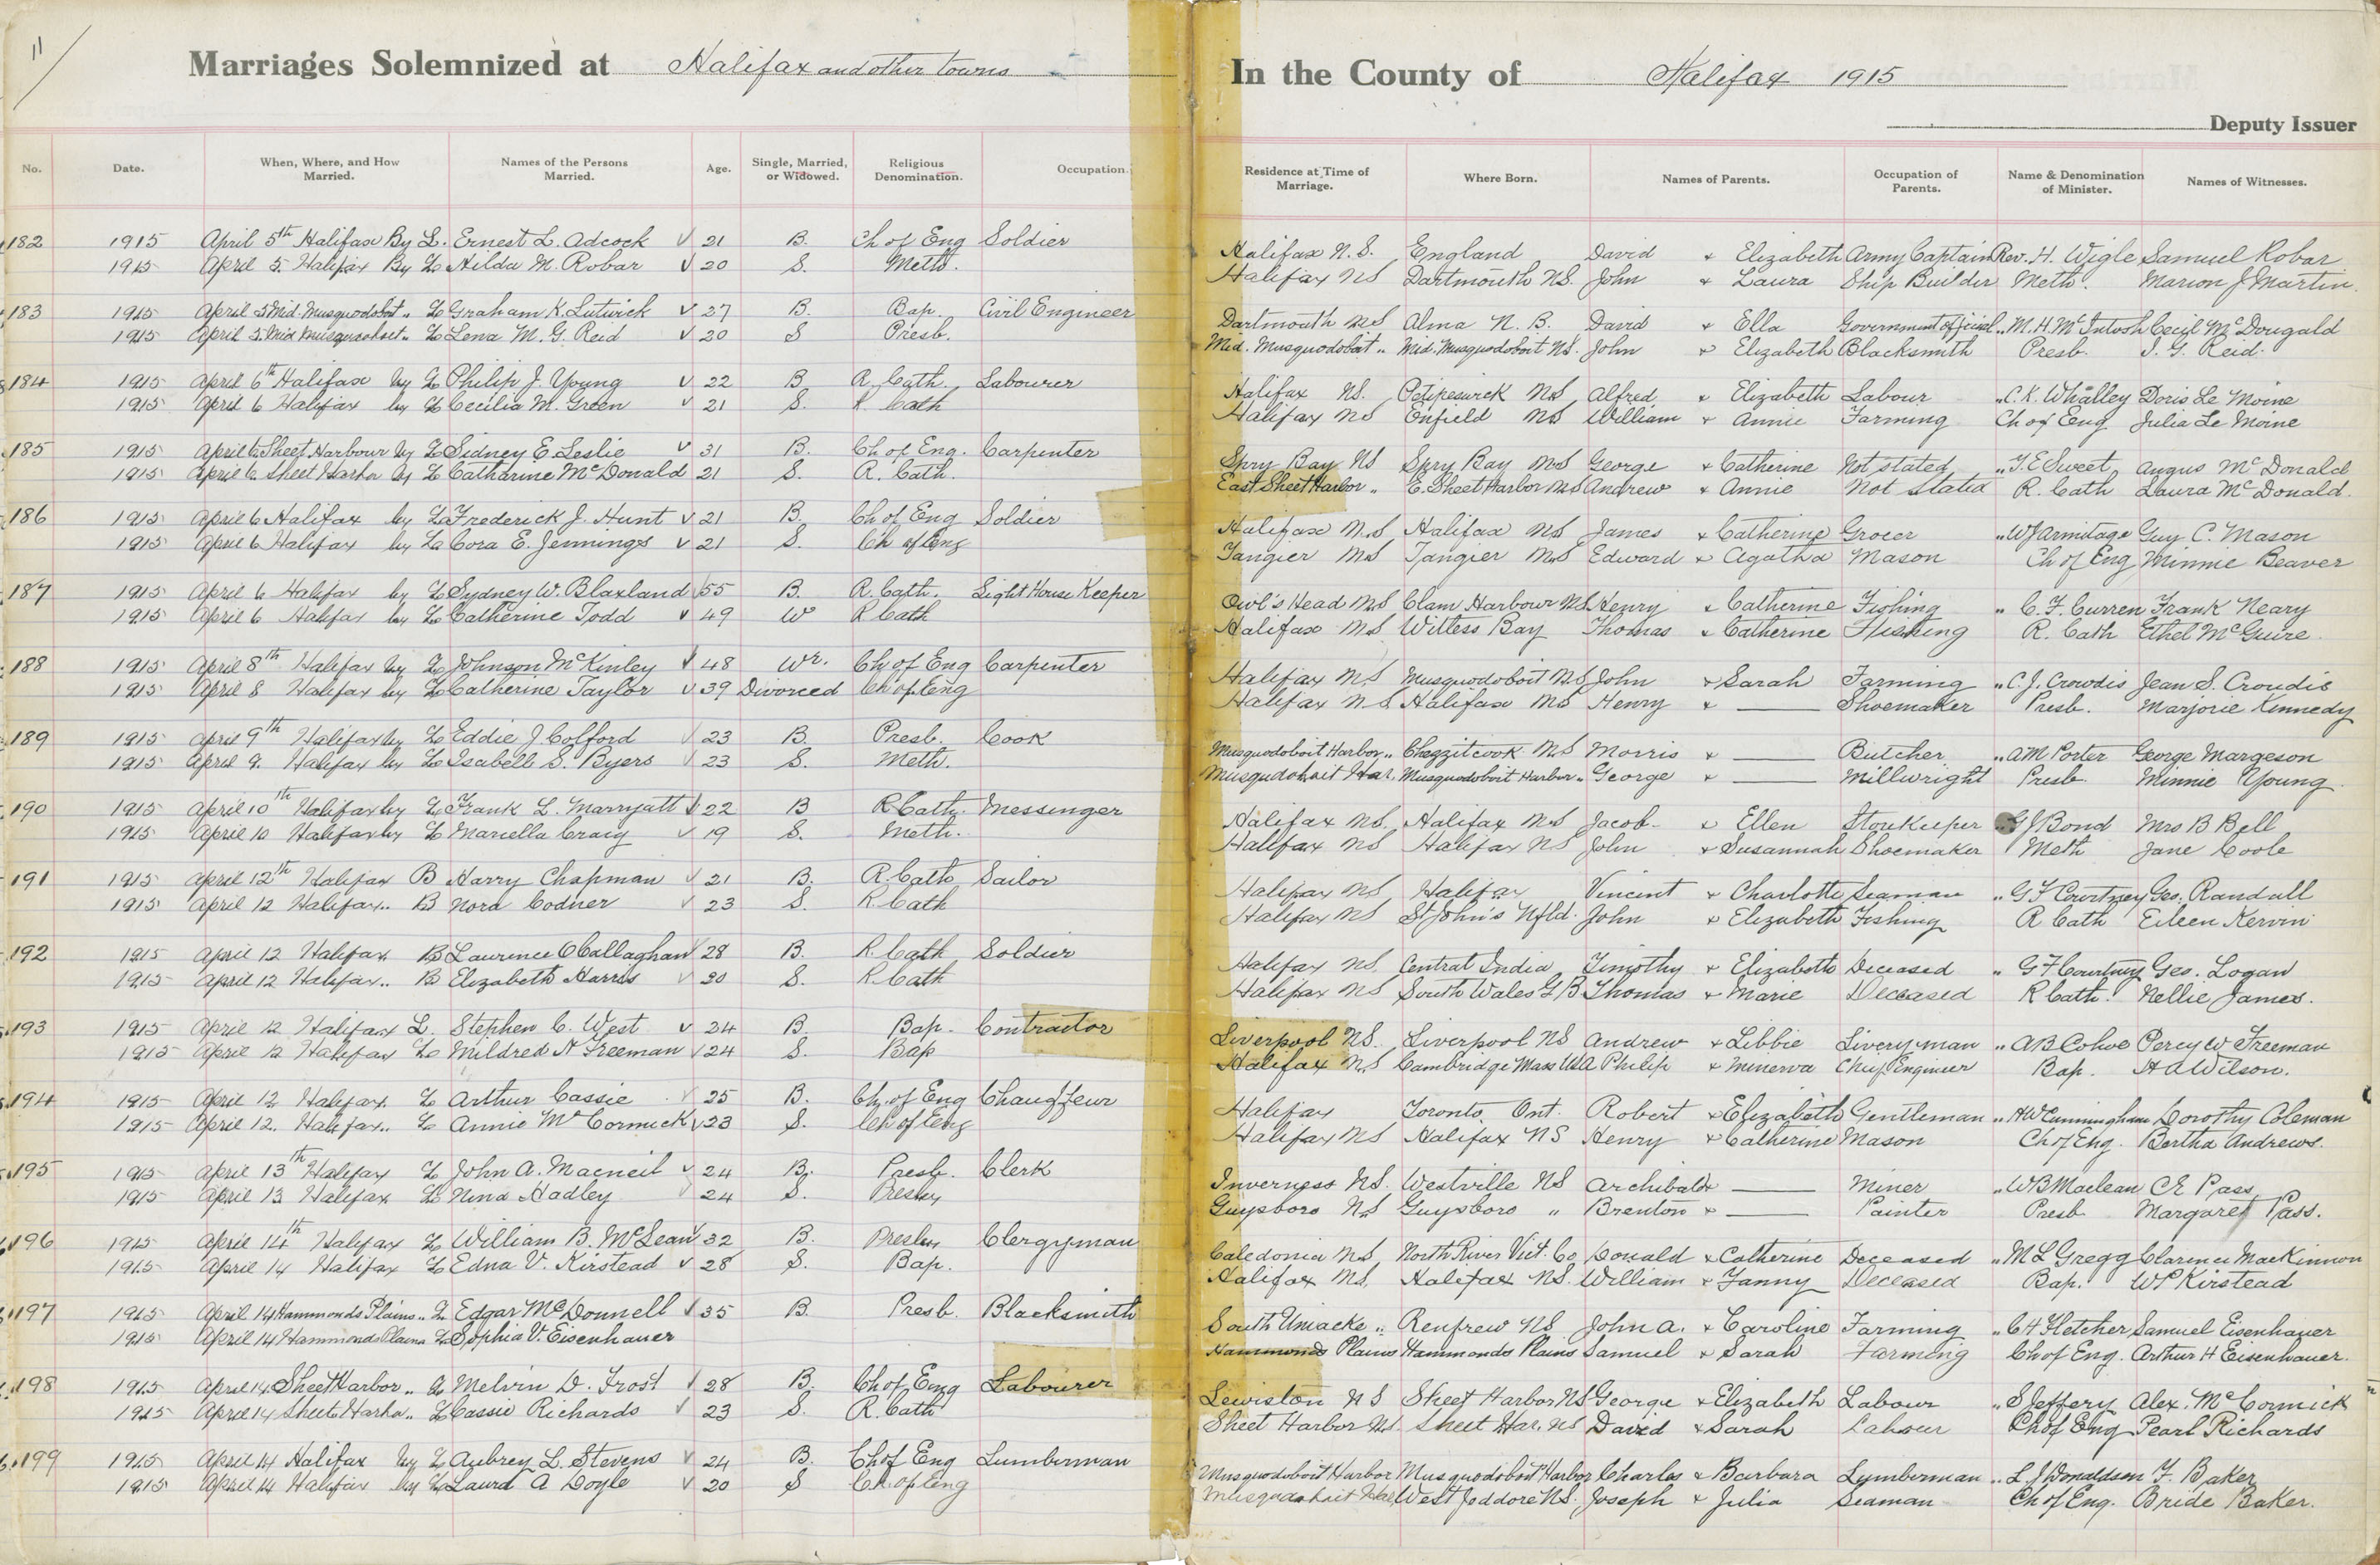 11
Marriages Solemnized at Halifax and other towns
In the County of Halifax 1915
Deputy Issuer
No. Date. When, Where, and How Married. Names of the Persons Married. Age. Single, Married, or Widowed. Religious Denomination. Occupation. Residence at Time of Marriage. Where Born. Names of Parents. Occupation of Parents. Name & Denomination of Minister. Names of Witnesses.
182 1915 April 5th Halifax By L. Ernest L. Adcock 21 B. Ch of Eng Soldier Halifax N.S. England David & Elizabeth Army Captain Rev. H. Wigle Samuel Robar
1915 April 5 Halifax By L Hilda M. Robar 20 S. Meth. Halifax NS Dartmouth NS. John & Laura Ship Builder Meth. Marion J Martin.
183 1915 April 5 Mid. Musquodoboit .. L Graham K. Lutwick 27 B. Bap. Civil Engineer Dartmouth NS Alma N. B. David & Ella Government official .. M. H. McIntosh Cecil McDougald
1915 April 5. Mid Musquodoboit .. L Lena M. G. Reid 20 S Presb. Mid. Musquodoboit .. Mid. Musquodoboit NS. John & Elizabeth Blacksmith Presb. J. G. Reid.
184 1915 April 6th Halifax by L Philip J. Young 22 B R. Cath. Labourer Halifax NS. Petpeswick NS Alfred & Elizabeth Labour .. C. K. Whalley Doris Le Moine
1915 April 6 Halifax by L Cecilia M. Green 21 S. R. Cath Halifax NS Enfield NS William & Annie Farming Ch of Eng Julia Le Moine
185 1915 April 6 Sheet Harbour by L Sidney E Leslie 31 B. Ch of Eng. Carpenter Spry Bay NS Spry Bay NS George & Catherine Not stated .. T. E Sweet Angus McDonald
1915 April 6 Sheet Harbor by L Catharine McDonald 21 S. R. Cath. East Sheet Harbor .. E. Sheet Harbor NS Andrew & Annie Not Stated R. Cath Laura McDonald.
186 1915 April 6 Halifax by L Frederick J. Hunt 21 B. Ch of Eng Soldier Halifax N.S Halifax NS James & Catherine Grocer .. W J Armitage Guy C. Mason
1915 April 6 Halifax by L Cora E. Jennings 21 S. Ch of Eng Tangier NS Tangier NS Edward & Agatha Mason Ch of Eng Minnie Beaver
187 1915 April 6 Halifax by L Sydney W. Blaxland 55 B. R. Cath. Light House Keeper Owl's Head NS Clam Harbour NS. Henry & Catherine Fishing .. C. F. Curren Frank Neary
1915 April 6 Halifax by L Catherine Todd 49 W R Cath Halifax NS Witless Bay Thomas & Catherine Fishing R. Cath Ethel McGuire
188 1915 April 8th Halifax by L Johnson McKinley 48 Wr. Ch of Eng Carpenter Halifax NS Musquodoboit NS John & Sarah Farming .. C. J. Crowdis Jean S. Croudis
1915 April 8 Halifax by L Catherine Taylor 39 Divorced Ch of Eng Halifax N.S Halifax NS Henry & — Shoemaker Presb. Marjorie Kennedy
189 1915 April 9th Halifax by L Eddie J Colford 23 B. Presb. Cook Musquodoboit Harbor .. Chezzitcook NS Morris & — Butcher .. A M Porter George Margeson
1915 April 9. Halifax by L Isabelle S. Byers 23 S. Meth. Musquodoboit Har. Musquodoboit Harbor .. George & — Millwright Presb Minnie Young
190 1915 April 10th Halifax by L Frank L. Marryatt 22 B R Cath. Messinger Halifax NS. Halifax NS Jacob & Ellen StoreKeeper .. G J Bond Mrs B Bell
1915 April 10 Halifax by L Marcella Craig 19 S. Meth. Halifax NS Halifax NS John & Susannah Shoemaker Meth Jane Coole
191 1915 April 12th Halifax B Harry Chapman 21 B. R. Cath Sailor Halifax NS Halifax Vincent & Charlotte Seaman .. G F Courtney Geo. Randall
1915 April 12 Halifax.. B Nora Codner 23 S. R Cath Halifax NS St John's Nfld. John & Elizabeth Fishing R Cath Eileen Kervin
192 1915 April 12 Halifax B Laurence OCallaghan 28 B. R. Cath Soldier Halifax NS. Central India Timothy & Elizabeth Deceased .. G F Courtney Geo. Logan
1915 April 12 Halifax.. B Elizabeth Harris 30 S. R Cath Halifax NS South Wales G B Thomas & Marie Deceased R Cath. Nellie James.
193 1915 April 12 Halifax L. Stephen C. West 24 B. Bap. Contractor Liverpool NS. Liverpool NS Andrew & Libbie Liveryman .. A B Cohoe Percy W Freeman
1915 April 12 Halifax L Mildred N Freeman 24 S. Bap Halifax NS Cambridge Mass USA Philip & Minerva Chief Engineer Bap. H A Wilson.
194 1915 April 12 Halifax. L Arthur Cassie 25 B. Ch. of Eng Chauffeur Halifax Toronto Ont. Robert & Elizabeth Gentleman .. H W Cunningham Dorothy Coleman
1915 April 12. Halifax.. L Annie McCormick 23 S. Ch of Eng Halifax NS Halifax NS Henry & Catherine Mason Ch of Eng. Bertha Andrews.
195 1915 April 13th Halifax L John A. Macneil 24 B. Presb. Clerk Inverness NS. Westville NS Archibald & — Miner .. W B Maclean C E Pass
1915 April 13 Halifax L Nina Hadley 24 S. Presby Guysboro NS Guysboro " Brenton & — Painter Presb Margaret Pass.
196 1915 April 14th Halifax L William B. McLean 32 B. Presby Clergyman Caledonia NS North River Vict. Co Donald & Catherine Deceased .. M L Gregg Clarence MacKinnon
1915 April 14 Halifax L Edna V. Kirstead 28 S. Bap. Halifax NS. Halifax NS. William & Fanny Deceased Bap. W P Kirstead
197 1915 April 14 Hammonds Plains .. L Edgar McDonnell 35 B. Presb. Blacksmith South Uniacke .. Renfrew NS John A. & Caroline Farming .. C H Fletcher Samuel Eisenhauer
1915 April 14 Hammonds Plains L Sophia V. Eisenhauer Hammonds Plains Hammonds Plains Samuel & Sarah Farming Ch of Eng. Arthur H Eisenhauer.
198 1915 April 14 Sheet Harbor .. L Melvin D. Frost 28 B. Ch of Eng Labourer Lewiston NS Sheet Harbor NS George & Elizabeth Labour .. S Jeffery Alex. McCormick
1915 April 14 Sheet Harbor .. L Cassie Richards 23 S. R. Cath Sheet Harbor NS. Sheet Har. NS David & Sarah Labour Ch of Eng Pearl Richards
199 1915 April 14 Halifax by L Aubrey L. Stevens 24 B. Ch of Eng Lumberman Musquodoboit Harbor Musquodoboit Harbor Charles & Barbara Lumberman .. L J Donaldson F. Baker
1915 April 14 Halifax by L Laura A Doyle 20 S Ch. of Eng Musquodoboit Har West Jeddore NS. Joseph & Julia Seaman Ch of Eng. Bride Baker.